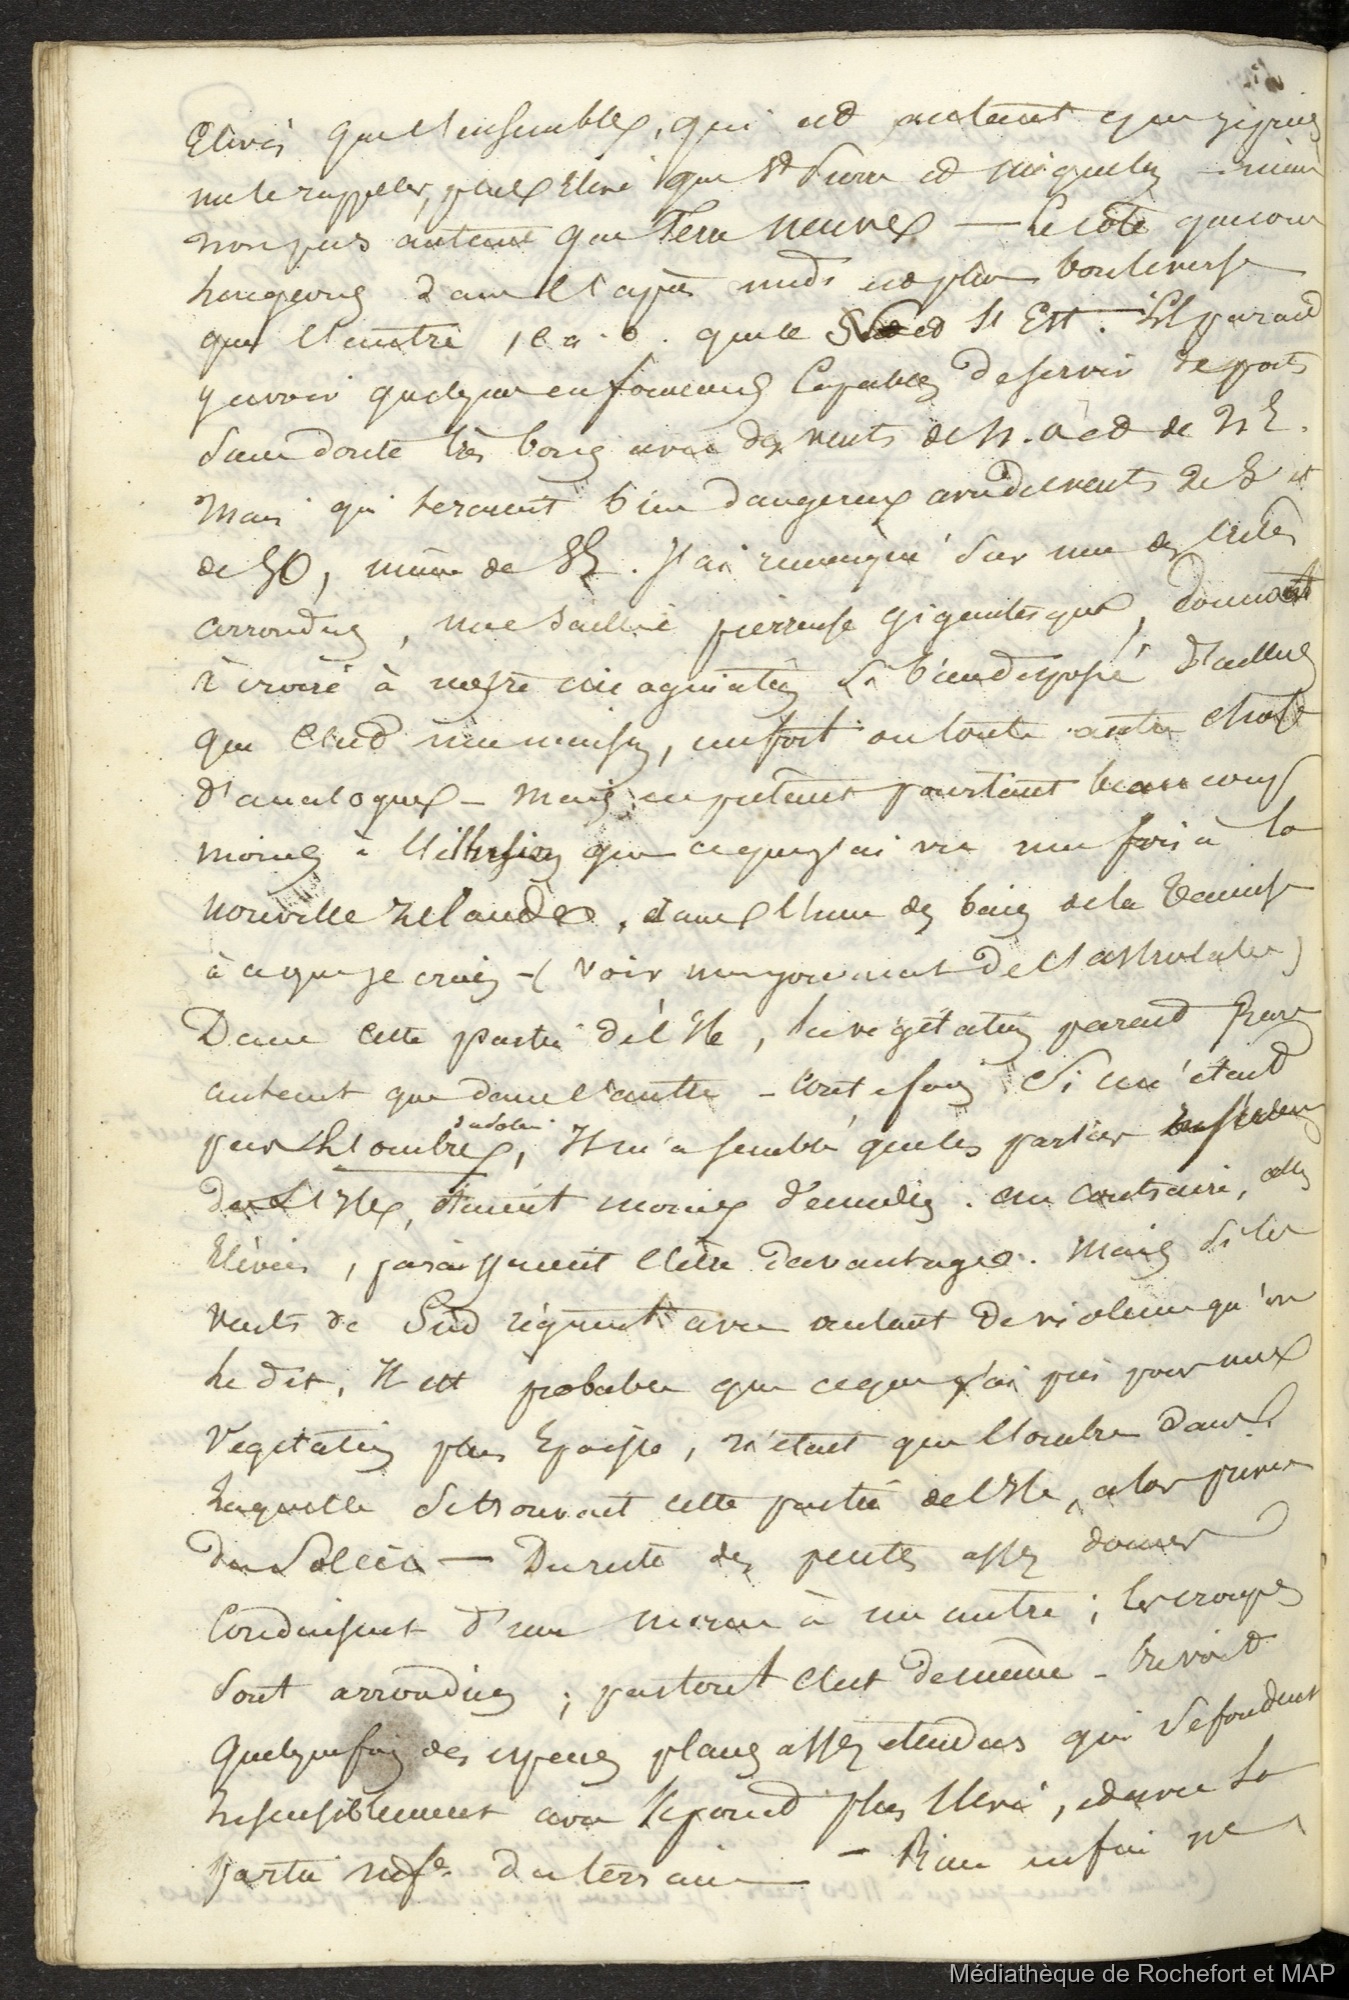 Elevés que l'ensemble, qui est autant que je puis
me le rappeler, plus élevé que St Pierre et Miquelon – mais
non pas autant que Terre Neuve – Le côté que nous
longeons dans l'après midi est plus bouleversé
que l'autre, c.a.d. que le Sud et l'Est. Il parait
y avoir quelques enfoncemens capables de servir de ports
Sans doute très bons avec des vents de N.O et de NE.
Mais qui seraient bien dangereux avec des vents de S et
de SO, même de SE. J'ai remarqué sur une des cîmes
arrondies, une saillie pierreuse gigantesque, donnant
à croire à notre imagination si bien disposée d'ailleurs
que c'était une maison, un fort ou toute autre chose
d'analogue – Mais en prêtant pourtant beaucoup
moins à l'illusion que ce que j'ai vu une fois à la
nouvelle Zelande, dans l'une des baies de la Tamise
à ce que je crois – (voir mon journal de l'astrolabe)
Dans cette partie de l'Ile, la végétation parait rare
autant que dans l'autre – toutefois si ce n'était
par l'ombre, Il m'a semblé que les parties
de l'Ile, étaient moins dénudées. au contraire, elles
Elevées, paraissaient l'être davantage. Mais si les
vents de Sud règnent avec autant de violence qu'on
le dit, Il est probable que ce que j'ai pris pour une
végétation plus épaisse, n'était que l'ombre dans
laquelle se trouvait cette partie de l'Ile, alors privée
du Soleil – Du reste des pentes assez douces
Conduisent d'un morne à un autre; les croupes
Sont arrondies; partout c'est de même – On voit
Quelquefois des espaces plans assez étendus qui se fondent
Insensiblement avec le fond plus élevé, et avec la
partie infre du terrain – Rien enfin ne
Médiathèque de Rochefort et MAP